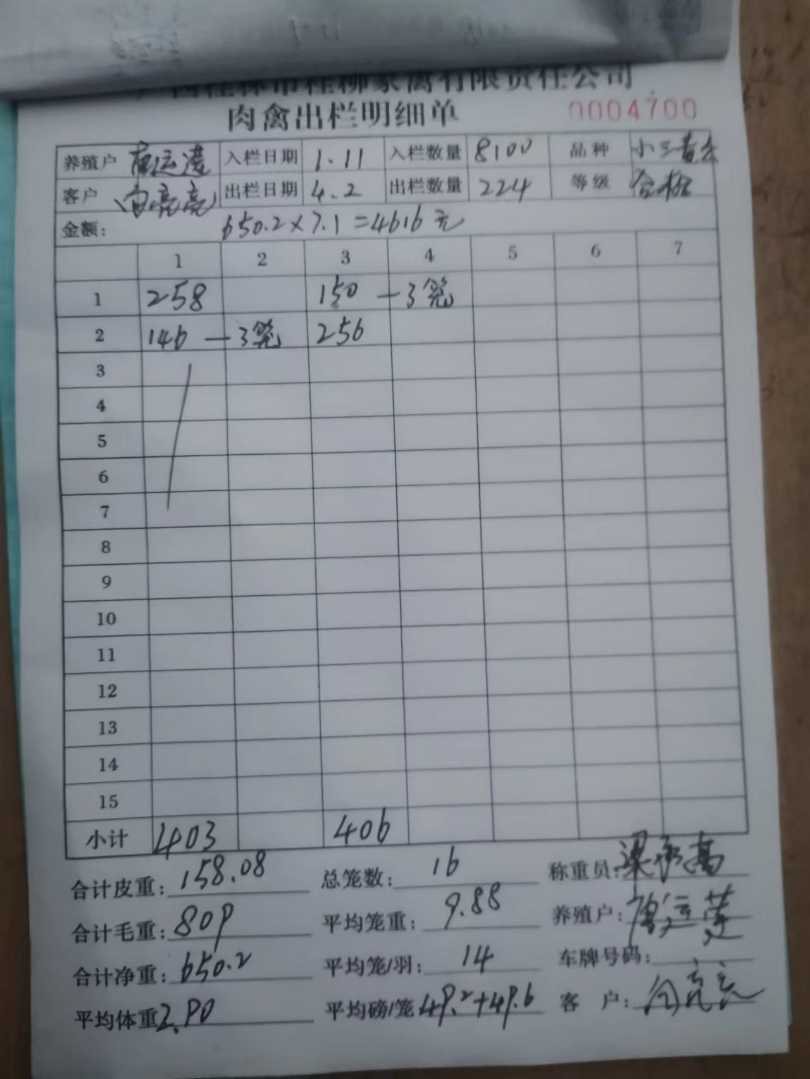 广西桂林市桂柳家禽有限责任公司
肉禽出栏明细单 0004700
养殖户 入栏日期 1.11 入栏数量 8100 品种
客户 出栏日期 4.2 出栏数量 224 等级 合格
金额: 650.2×7.1=4616元
1 2 3 4 5 6 7
1 258 150 —3笼
2 146 —3笼 256
3
4
5
6
7
8
9
10
11
12
13
14
15
小计 403 406
合计皮重: 158.08 总笼数: 16 称重员:
合计毛重: 809 平均笼重: 9.88 养殖户:
合计净重: 650.2 平均笼/羽: 14 车牌号码:
平均体重 2.90 平均磅/笼 49.2+49.6 客户: